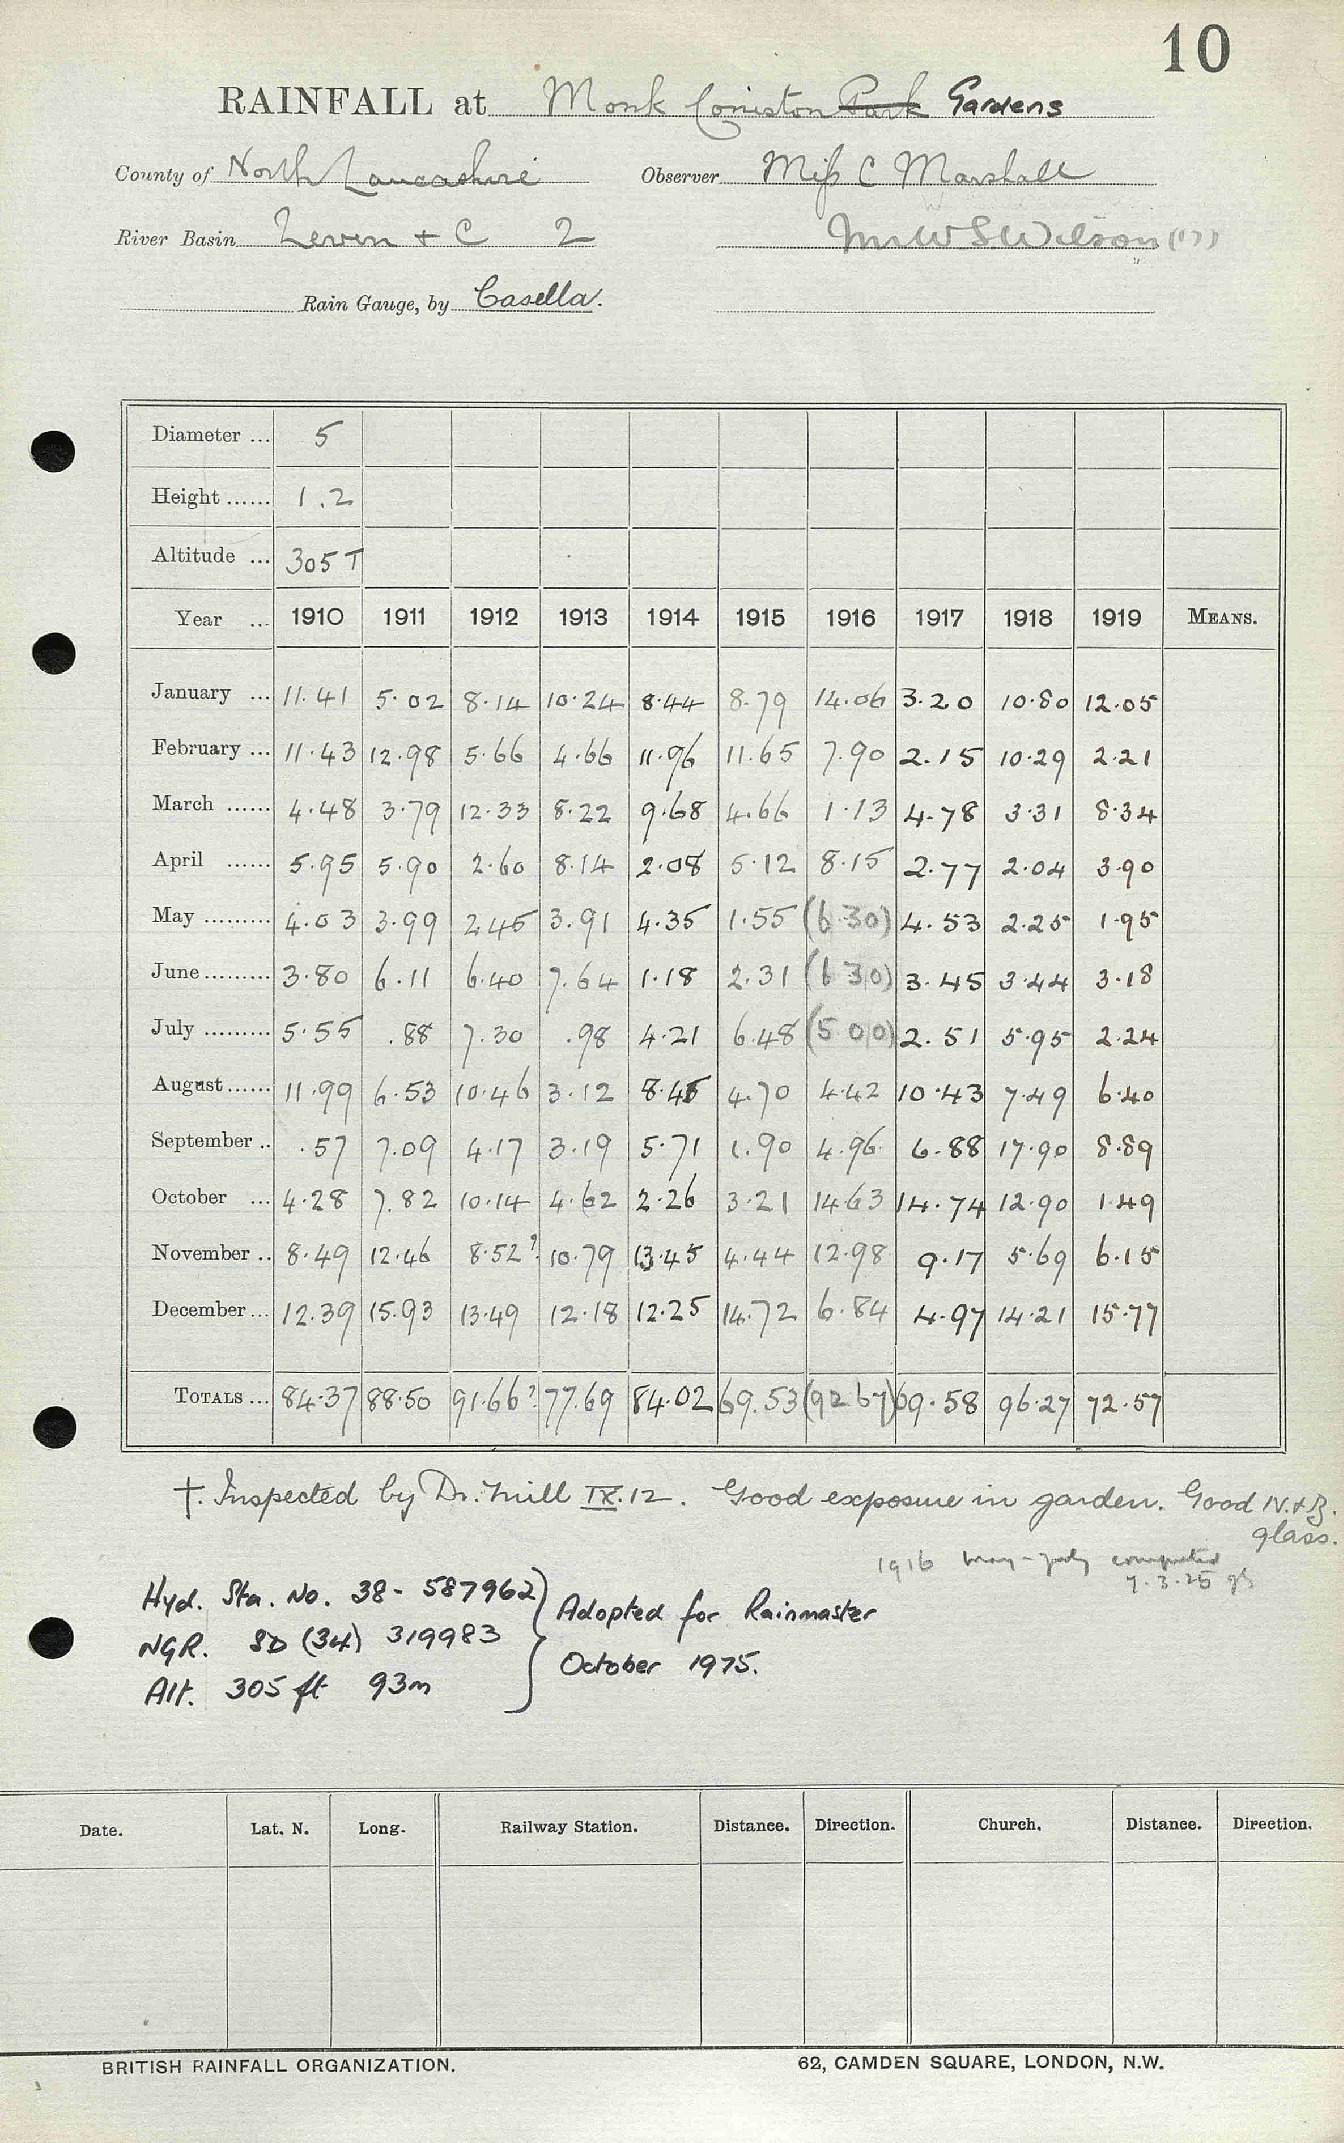 10
RAINFALL at Monk Coniston Park Gardens
County of North Lancashire Observer Miss C Marshall
River Basin Leven + C 2 Mr W S Wilson (17)
Rain Gauge, by Casella.
Diameter ... 5
Height ...... 1.2
Altitude ... 305 T
Year ... 1910 1911 1912 1913 1914 1915 1916 1917 1918 1919 MEANS.
January ... 11.41 5.02 8.14 10.24 8.44 8.79 14.06 3.20 10.80 12.05
February ... 11.43 12.98 5.66 4.66 11.96 11.65 7.90 2.15 10.29 2.21
March ...... 4.48 3.79 12.33 8.22 9.68 4.66 1.13 4.78 3.31 8.34
April ...... 5.95 5.90 2.60 8.14 2.08 5.12 8.15 2.77 2.04 3.90
May ......... 4.03 3.99 2.45 3.91 4.35 1.55 (6 30) 4.53 2.25 1.95
June ......... 3.80 6.11 6.40 7.64 1.18 2.31 (6 30) 3.45 3.44 3.18
July ......... 5.55 .88 7.30 .98 4.21 6.48 (5 00) 2.51 5.95 2.24
August ...... 11.99 6.53 10.46 3.12 8.45 4.70 4.42 10.43 7.49 6.40
September .. .57 7.09 4.17 3.19 5.71 1.90 4.96 6.88 17.90 8.89
October ... 4.28 7.82 10.14 4.62 2.26 3.21 14.63 14.74 12.90 1.49
November .. 8.49 12.46 8.52? 10.79 13.45 4.44 12.98 9.17 5.69 6.15
December ... 12.39 15.93 13.49 12.18 12.25 14.72 6.84 4.97 14.21 15.77
TOTALS ... 84.37 88.50 91.66? 77.69 84.02 69.53 (92 67) 69.58 96.27 72.57
†. Inspected by Dr. Mill IX.12. Good exposure in garden. Good N. & Z.
glass.
1916 May-July computed
7.3.25
Hyd. Sta. No. 38 - 587962
Adopted for Rainmaster
NGR. SD (34) 319983
October 1975.
Alt. 305 ft 93m
Date. Lat. N. Long. Railway Station. Distance. Direction. Church. Distance. Direction.
BRITISH RAINFALL ORGANIZATION. 62, CAMDEN SQUARE, LONDON, N.W.